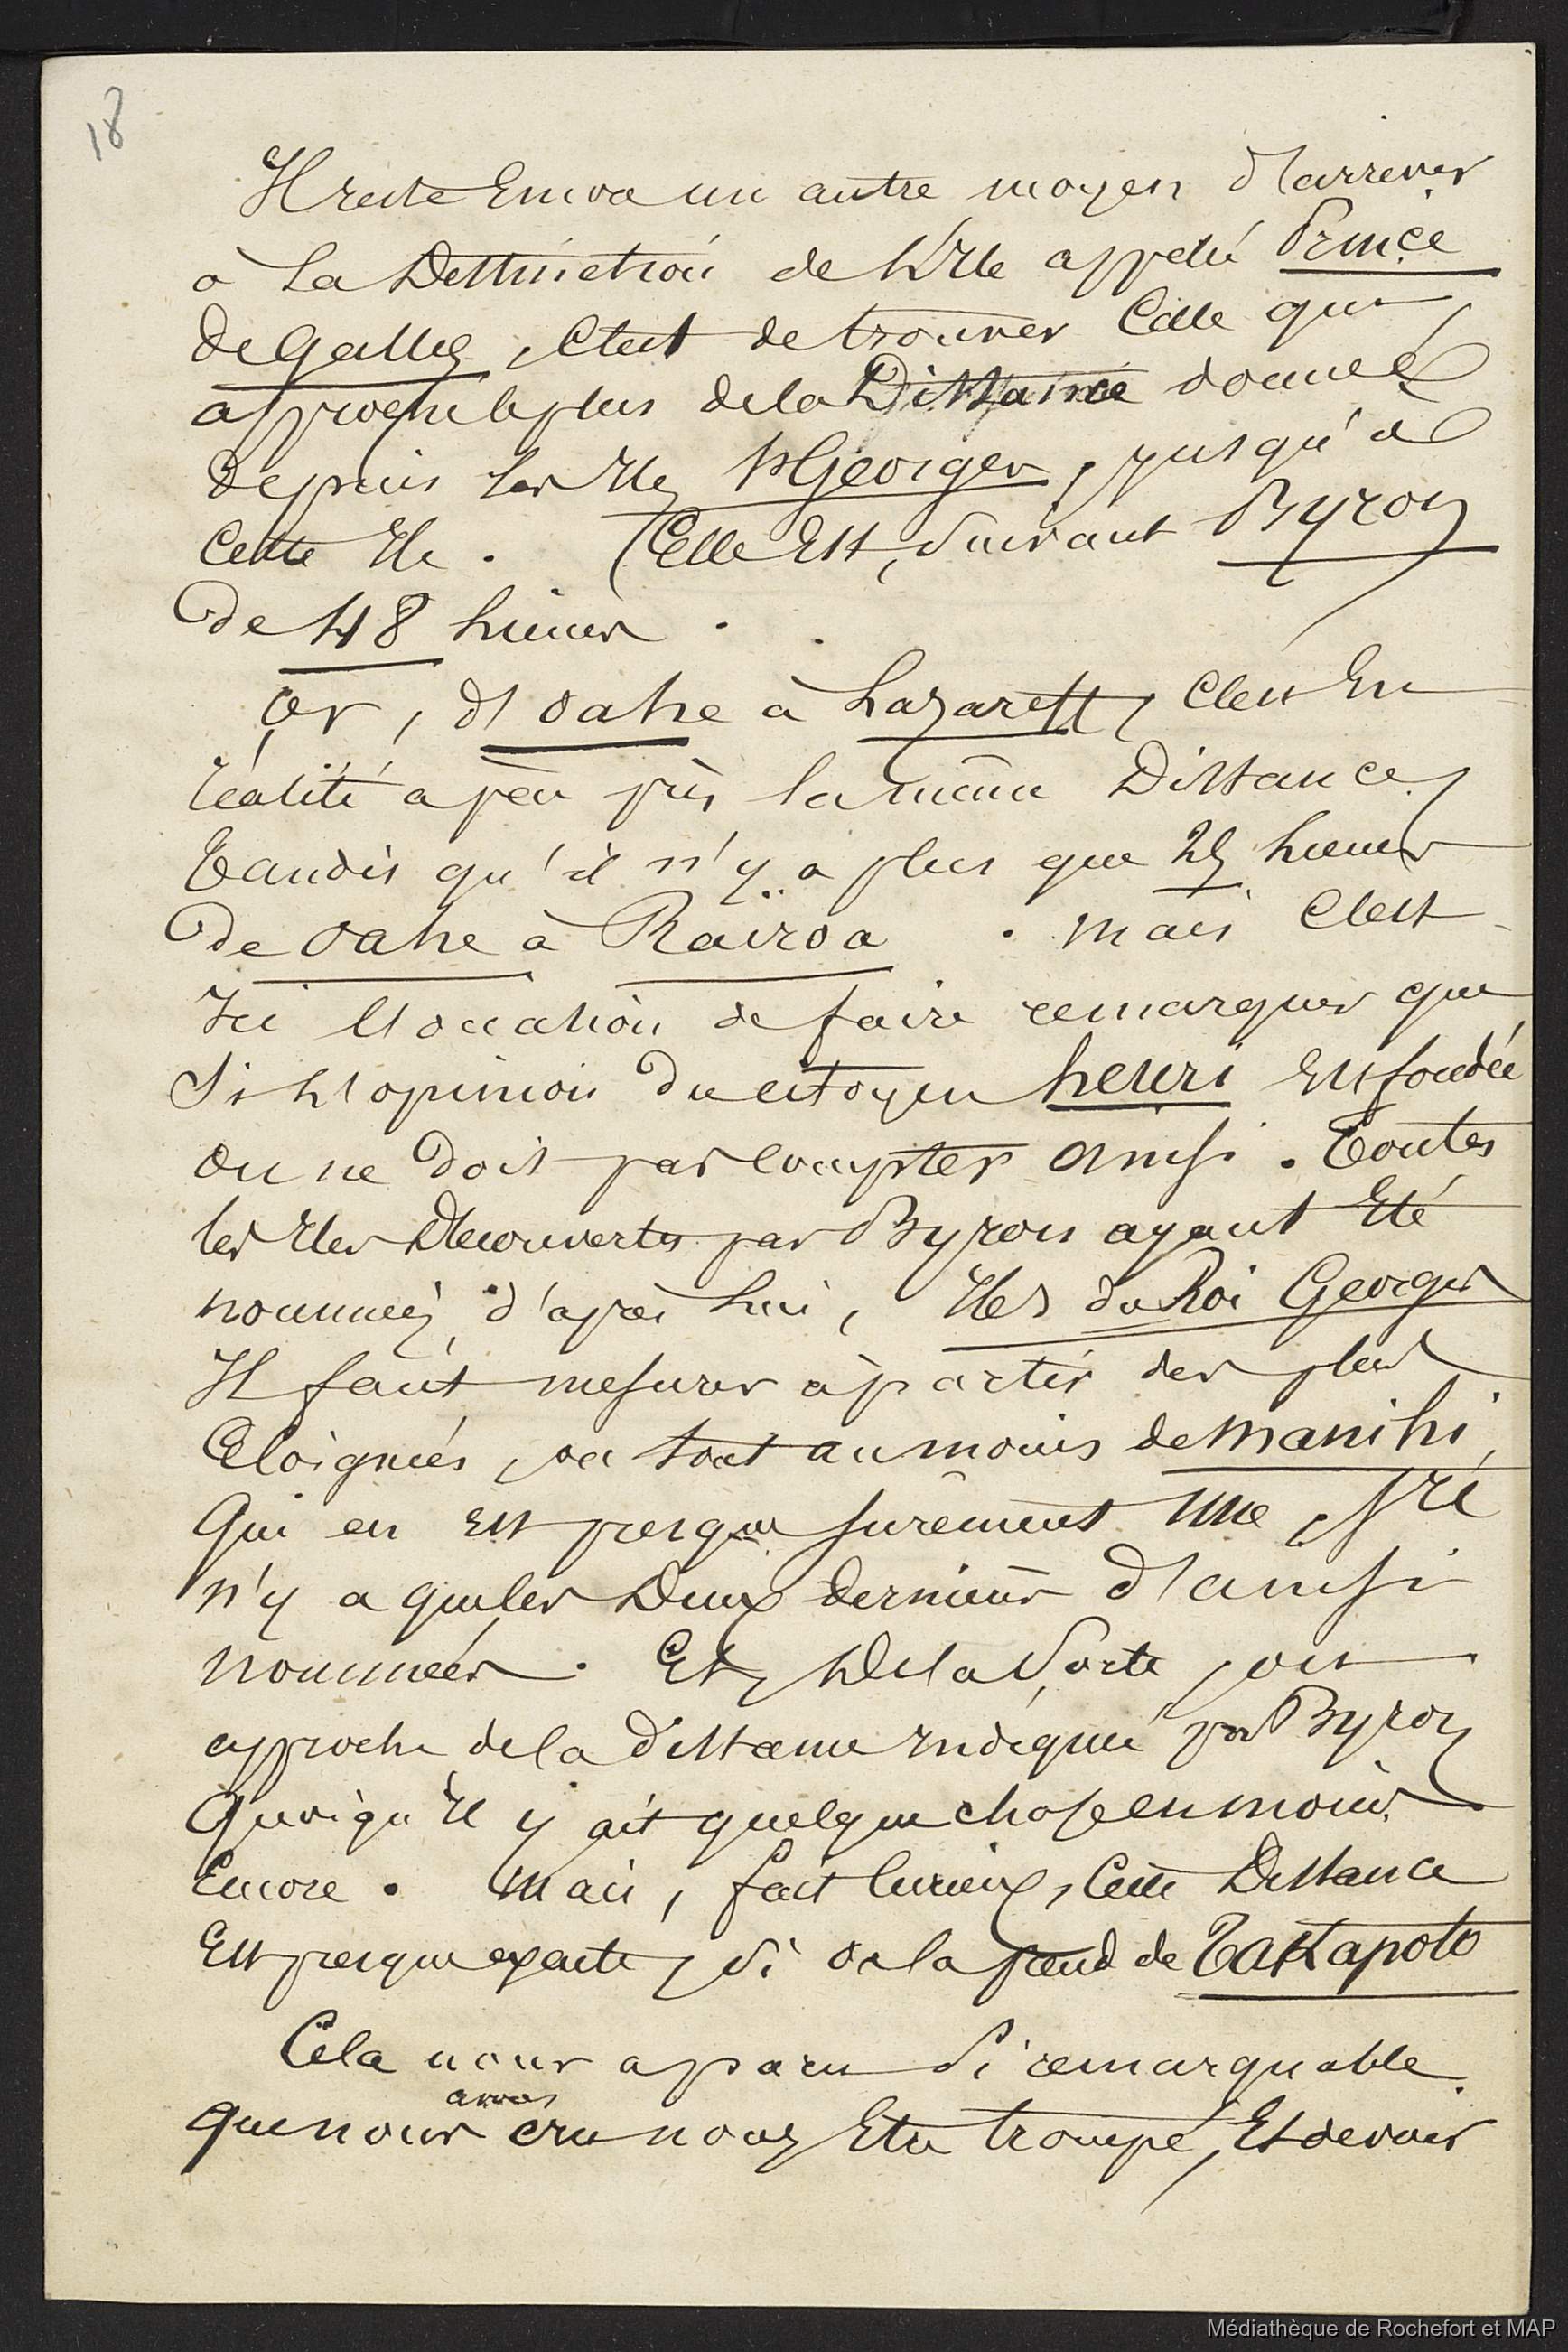 18
Il reste Encore un autre moyen d'arriver
à la Distinction de l'Ile appelée Prince
de Galles, C'est de trouver Celle qui
approche le plus de la Distance donnée
depuis les Iles St Georges, jusqu'à
Cette Ile. Celle Est, suivant Byron
de 48 lieues.
Or, d'oahe à Lazareff, C'est En
réalité a peu près la même Distance,
tandis qu'il n'y a plus que lieues
de oahe à Raïroa. mais C'est
Ici l'occasion de faire remarquer que
Si l'opinion du citoyen henri Est fondée
on ne doit pas compter ainsi. Toutes
les Iles Découvertes par Byron ayant Eté
nommées, d'après lui, Iles du Roi Georges
Il faut mesurer à partir des plus
Eloignées, ou tout au moins de Manihi,
Qui en Est presque surement Une, s'il
n'y a que les Deux dernières d'ainsi
nommées. Et, De la Sorte, on
approche de la distance Indiquée par Byron
Quoiqu'Il y ait quelque chose en moins
Encore. Mais, fait Curieux, Cette Distance
Est presque exacte, Si on la prend de Takapoto
Cela nous a paru Si remarquable
que nous avons cru nous Etre trompé, Et devoir
Médiathèque de Rochefort et MAP